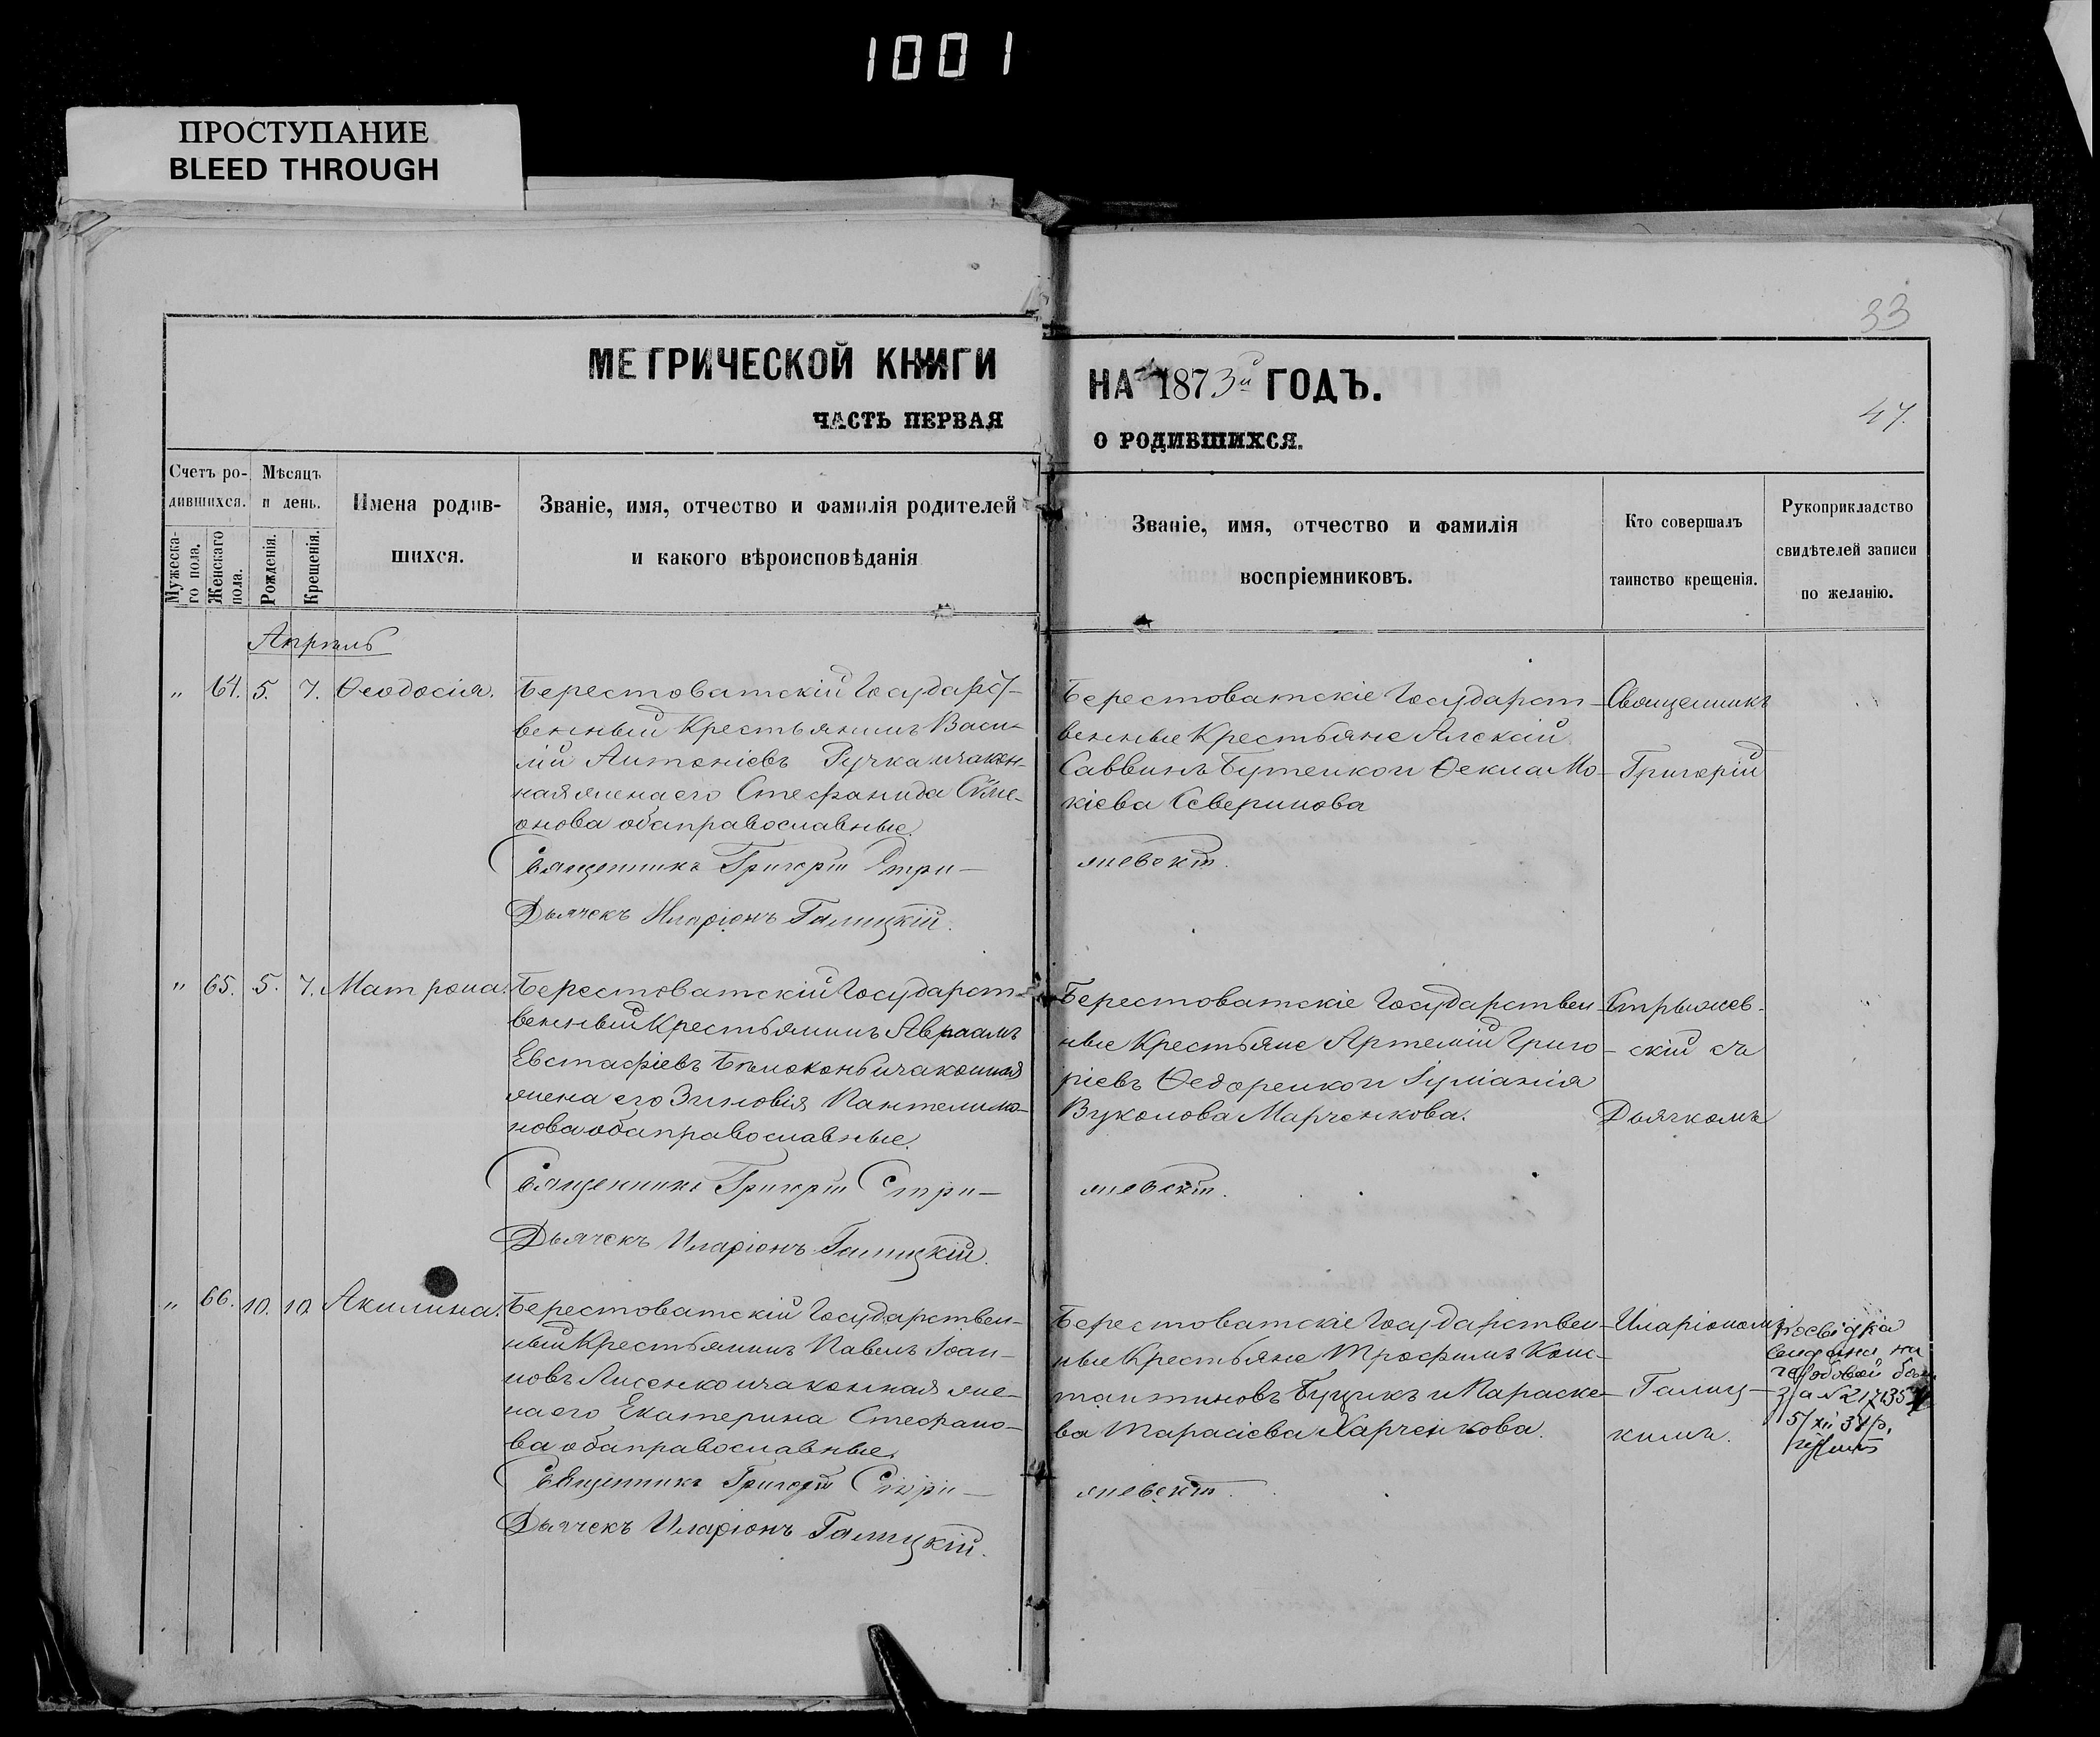 1001
ПРОСТУПАНИЕ
BLEED THROUGH
33
МЕТРИЧЕСКОЙ КНИГИ
НА 1873й ГОДЪ.
ЧАСТЬ ПЕРВАЯ
О РОДИВШИХСЯ.
47.
Счетъ ро-
дившихся.
Мужеска-
го пола.
Женскаго
пола.
Мѣсяцъ
и день.
Рожденія.
Крещенія.
Имена родив-
шихся.
Званіе, имя, отчество и фамилія родителей
и какого вѣроисповѣданія
Званіе, имя, отчество и фамилія
воспріемниковъ.
Кто совершалъ
таинство крещенія.
Рукоприкладство
свидѣтелей записи
по желанію.
Апрѣль
" 64. 5. 7. Ѳеодосія.
Берестоватскій Государст-
венный Крестьянинъ Васи-
лій Антоніевъ Гучка и закон-
ная жена его Стефанида Симе-
онова оба православные.
Священникъ Григорій Стри-
жевскій.
Дьячекъ Иларіонъ Галицкій.
Берестоватскіе Государст-
венные Крестьяне Алексій
Саввинъ Бутенко и Ѳекла Мо-
кіева Северинова
Священникъ
Григорій
" 65. 5. 7. Матрона.
Берестоватскій Государст-
венный Крестьянинъ Авраамъ
Евстафіевъ Бѣлоконь и законная
жена его Зиновія Пантелимо-
нова оба православные.
Священникъ Григорій Стри-
жевскій.
Дьячекъ Иларіонъ Галицкій.
Берестоватскіе Государствен-
ные Крестьяне Артемій Григо-
ріевъ Ѳедоренко и Іуліанія
Вуколова Марченкова.
Стрыжев-
скій съ
Дьячкомъ
" 66. 10. 10. Акилина.
Берестоватскій Государствен-
ный Крестьянинъ Павелъ Іоан-
новъ Лисенко и законная же-
на его Екатерина Стефано-
ва оба православные.
Священникъ Григорій Стри-
жевскій.
Дьячекъ Иларіонъ Галицкій.
Берестоватскіе Государствен-
ные Крестьяне Трофимъ Конс-
тантиновъ Буцикъ и Параске-
ва Тарасіева Харченкова.
Иларіономъ
Галиц-
кимъ.
Посвідка
видана на
за № 217135
5/xii 37р.